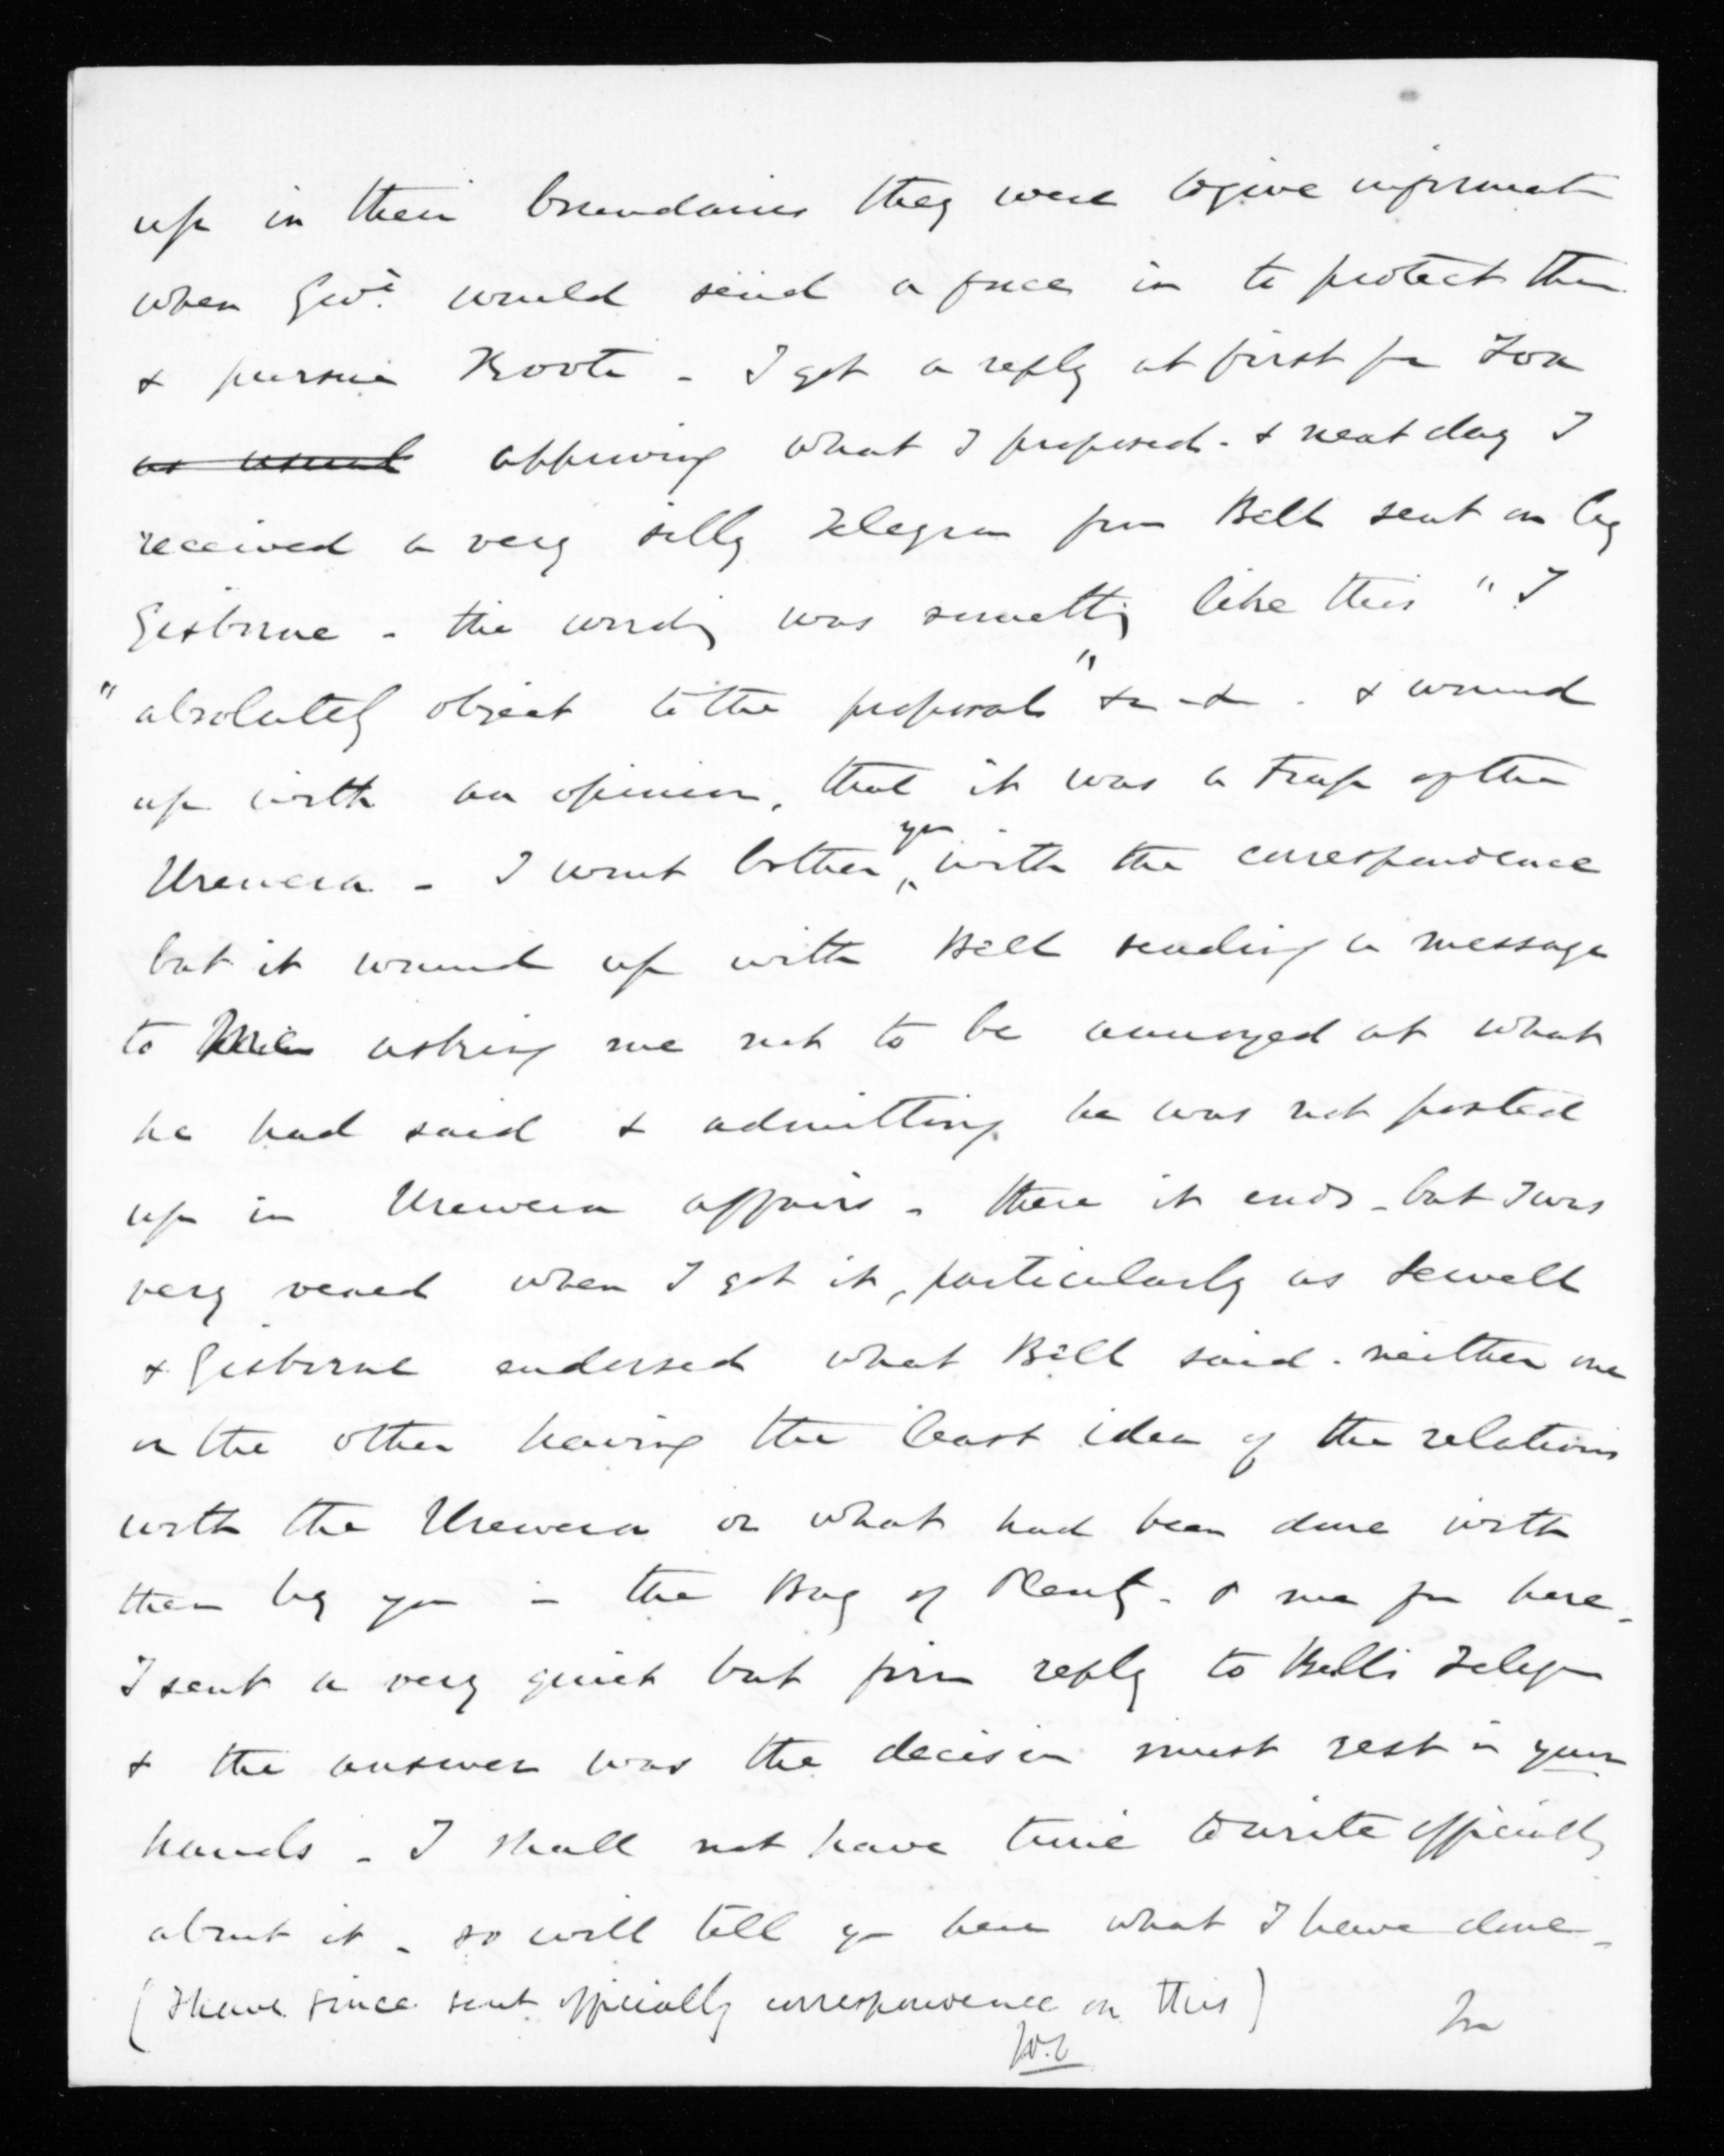 up in their boundaries they were to give informatn
when Govt. would send a force in to protect them
& pursue Kooti - I got a reply at first fm Fox
as usual approving what I proposed - & next day I
received a very silly Telegram from Bell sent on by
Gisborne - the wording was something like this " I
" absolutely object to the proposal " &c &c - & wound
up with an opinion, that it was a trap of the
Urewera - I wont bother you with the correspondence
but it wound up with Bell sending a message
to asking me not to be annoyed at what
he had said & admitting he was not posted
up in Urewera affairs - there it ends - but I was
very vexed when I got it, particularly as Sewell
& Gisborne endorsed what Bell said - neither one
or the other having the least idea of the relations
with the Urewera or what had been done with
them by you in the Bay of Plenty - & me fm here -
I sent a very quiet but firm reply to Bells Telegm
& the answer was the decision must rest in your
hands - I shall not have time to write officially
about it - so will tell you here what I have done -
(I have since sent officially correspondence on this)